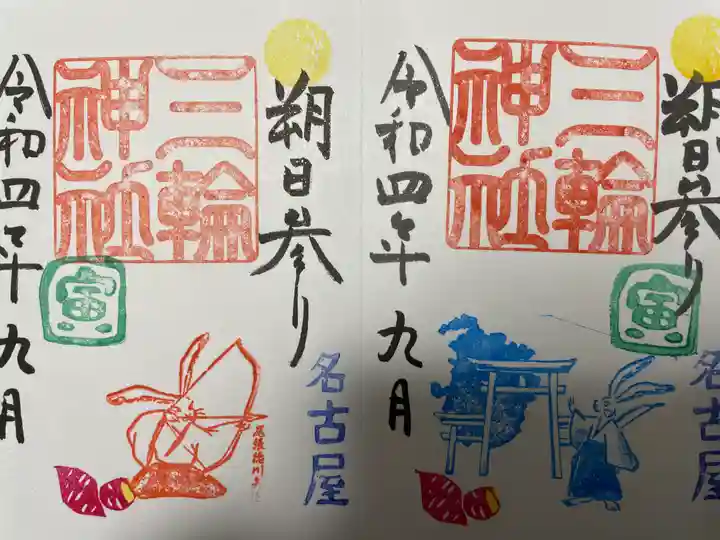 朔日参り
三輪神社
令和四年九月
寅
名古屋
朔日参り
三輪神社
令和四年九月
寅
名古屋